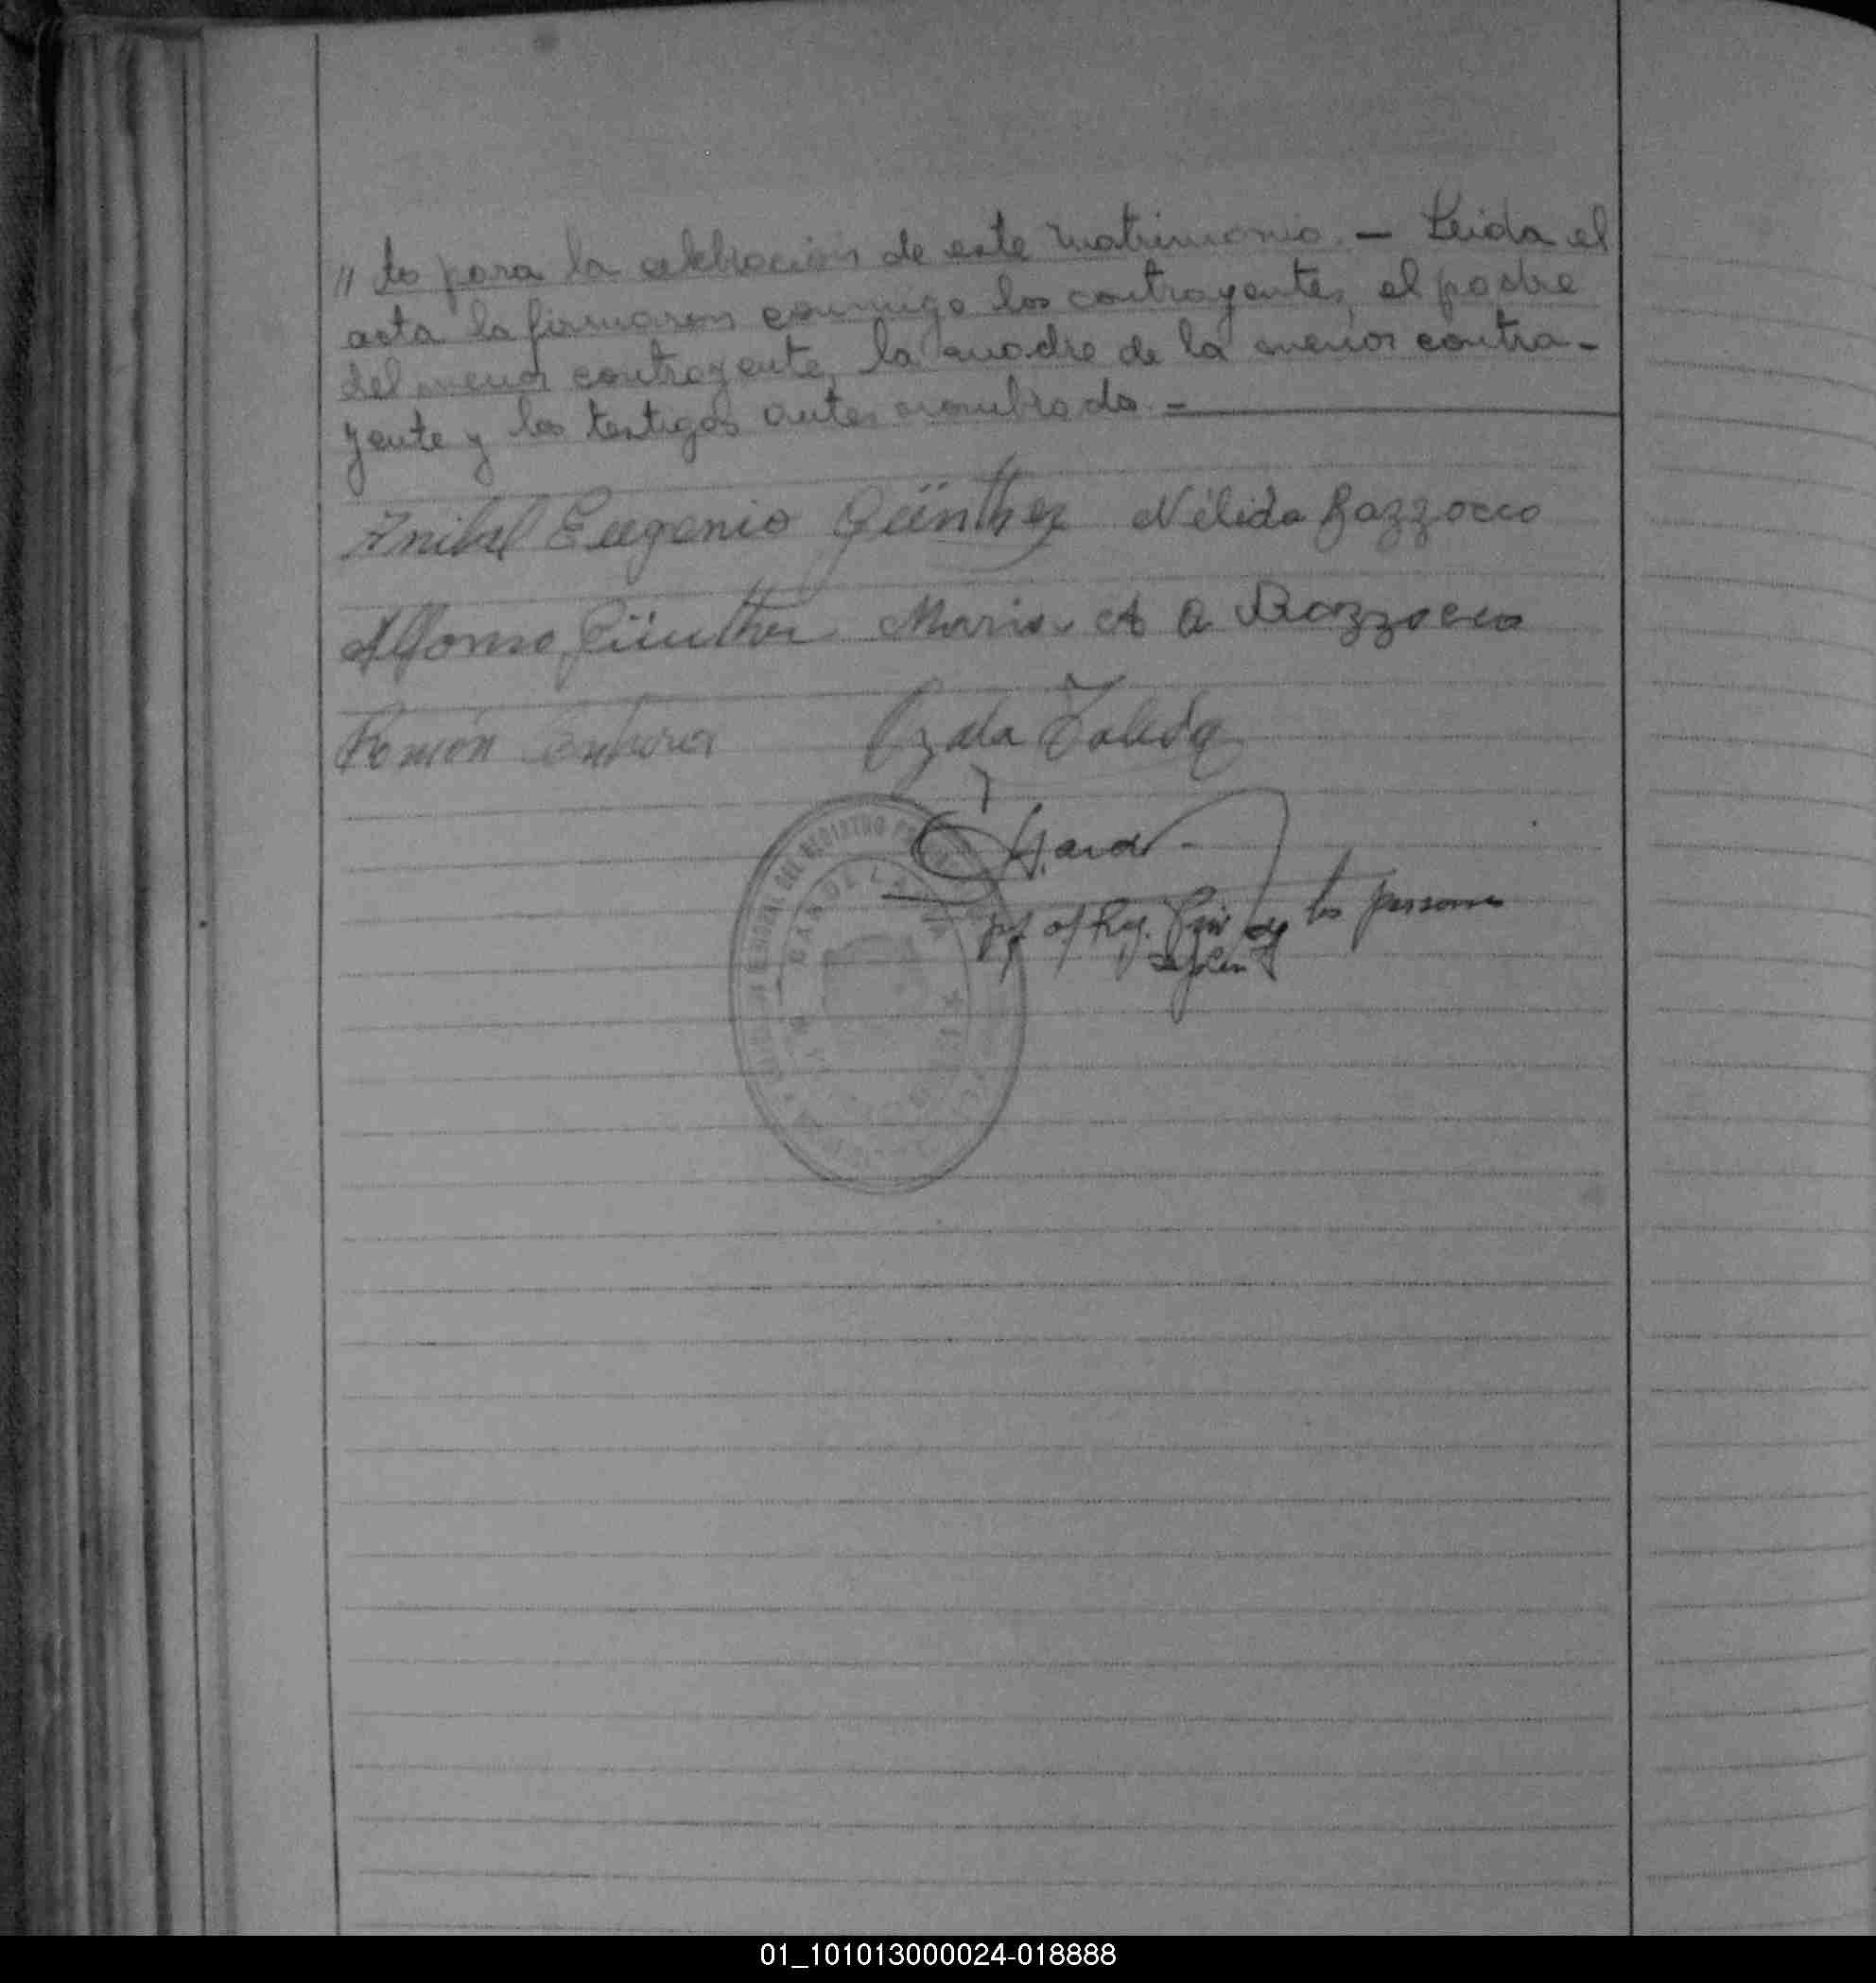 " to para la celebración de este matrimonio. — Leida el
acta la firmaron conmigo los contrayentes, el padre
del menor contrayente, la madre de la menor contra-
yente y los testigos antes nombrado. —
Anibal Eugenio Günther Nélida Bazzocco
Alfonso Günther Maria A A Bazzocco
Ramón Toledo
Hardr.
las personas
01_101013000024-018888